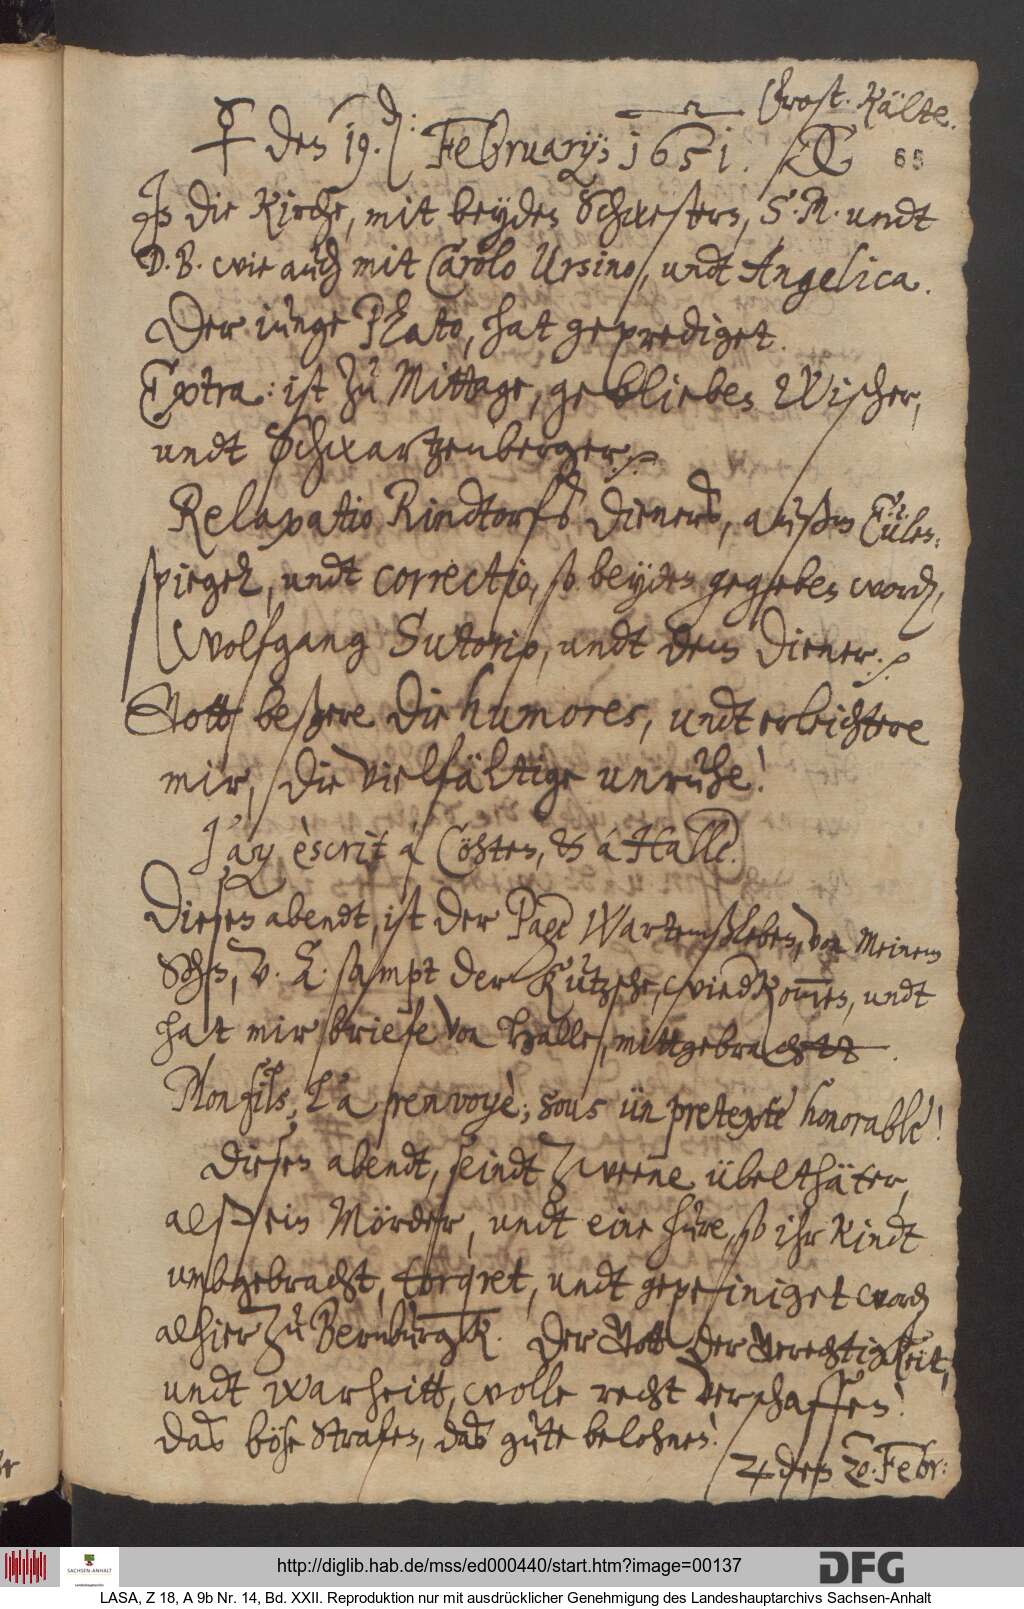 Frost. Kälte.
☿ den 19. d: February: 1651.
65
In die Kirche, mit beyden Schwestern, S. M. undt
D. B. wie auch mit Carolo Ursino, undt Angelica.
Der iunge Plato, hat geprediget.
Extra: ist zu Mittage, geblieben Wischer,
undt Schwartzenberger.
Relaxatio Rindtorfs dieners, außm Eülen-
spiegel, undt correctio, so beyden gegeben word,
Wolfgang Sutorio, undt dem Diener.
Gott beßere die humores, undt erleichtere
mir, die vielfältige unruhe!
J'ay èscrit a Cöhten, & à Halle.
Diesen abendt, ist der Page Wartemßleben, von Meinem
Sohn, V. A. sampt der Kutzsche, wiedkommen, undt
hat mir briefe von Halle, mittgebracht
Mon fils, l'a renvoyè; sous ün pretexte honorable!
Diesen abendt, seindt Zweene übelthäter,
alß ein Mörder, undt eine hure, so ihr Kindt
umbgebracht, torqret, undt gepeiniget word
alhier Zu Bernburgk. Der Gott der Gerechtigkeit,
undt warheitt, wolle recht verschaffen!
das böse strafen, das gute belohnen!
♃ den 20. Febr:
http://diglib.hab.de/mss/ed000440/start.htm?image=00137
SACHSEN-ANHALT
Landeshauptarchiv
DFG
LASA, Z 18, A 9b Nr. 14, Bd. XXII. Reproduktion nur mit ausdrücklicher Genehmigung des Landeshauptarchivs Sachsen-Anhalt